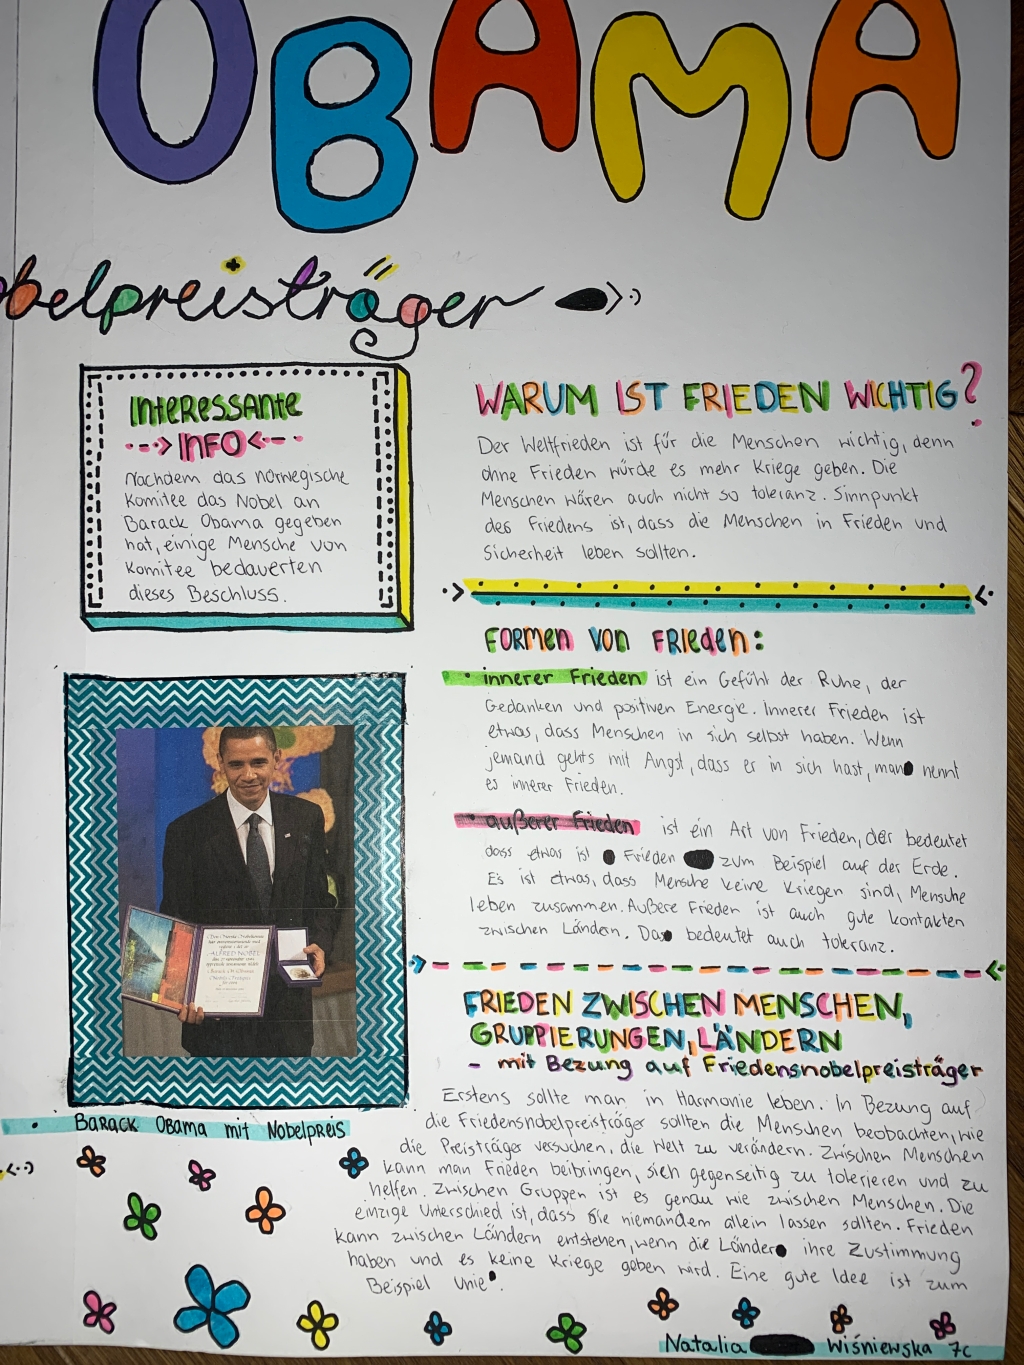 OBAMA
obelpreisträger
INTERESSANTE
INFO
Nachdem das norwegische
Komitee das Nobel an
Barack Obama gegeben
hat, einige Mensche von
Komitee bedauerten
dieses Beschluss.
WARUM IST FRIEDEN WICHTIG?
Der Weltfrieden ist für die Menschen wichtig, denn
ohne Frieden würde es mehr Kriege geben. Die
Menschen wären auch nicht so toleranz. Sinnpunkt
des Friedens ist, dass die Menschen in Frieden und
Sicherheit leben sollten.
FORMEN VON FRIEDEN:
• innerer Frieden ist ein Gefühl der Ruhe, der
Gedanken und positiven Energie. Innerer Frieden ist
etwas, dass Menschen in sich selbst haben. Wenn
jemand gehts mit Angst, dass er in sich hast, man nennt
es innerer Frieden.
• außerer Frieden ist ein Art von Frieden, der bedeutet
dass etwas ist Frieden zum Beispiel auf der Erde.
Es ist etwas, dass Mensche keine Kriegen sind, Mensche
leben zusammen. Außere Frieden ist auch gute kontakten
zwischen Ländern. Das bedeutet auch toleranz.
FRIEDEN ZWISCHEN MENSCHEN,
GRUPPIERUNGEN, LÄNDERN
- mit Bezung auf Friedensnobelpreisträger
Erstens sollte man in Harmonie leben. In Bezung auf
die Friedensnobelpreisträger sollten die Menschen beobachten, wie
die Preisträger versuchen, die Welt zu verändern. Zwischen Menschen
kann man Frieden beibringen, sich gegenseitig zu tolerieren und zu
helfen. Zwischen Gruppen ist es genau wie zwischen Menschen. Die
einzige Unterschied ist, dass Sie niemandem allein lassen sollten. Frieden
kann zwischen Ländern entstehen, wenn die Länder ihre Zustimmung
haben und es keine Kriege geben wird. Eine gute Idee ist zum
Beispiel Unie.
• Barack Obama mit Nobelpreis
Natalia Wiśniewska 7c